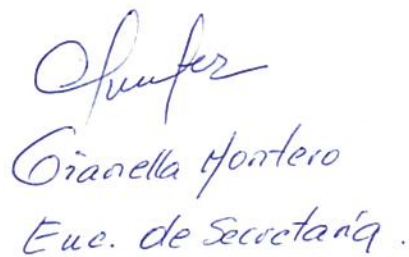 Gianella Montero
Enc. de Secretaría.